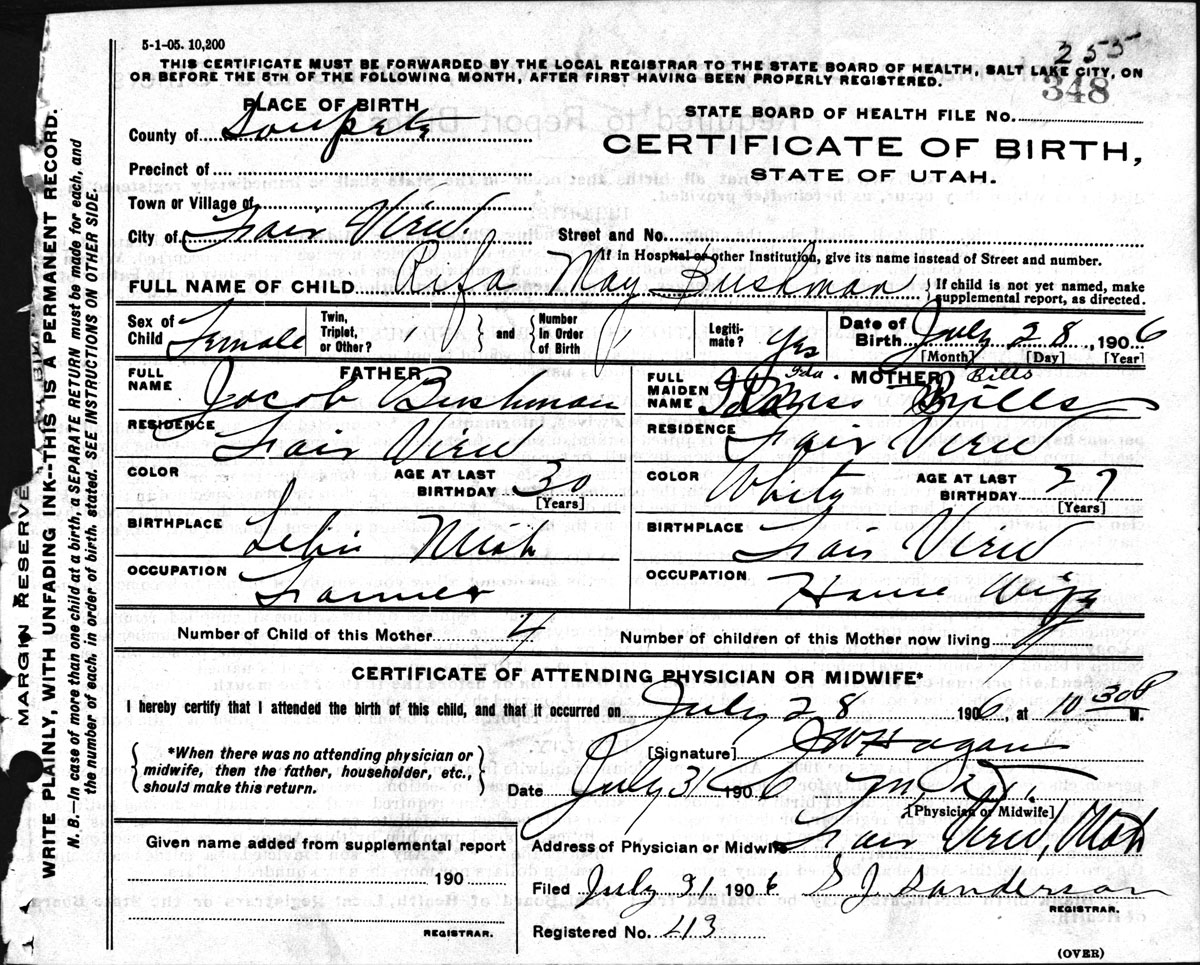 5-1-05. 10,200
255
THIS CERTIFICATE MUST BE FORWARDED BY THE LOCAL REGISTRAR TO THE STATE BOARD OF HEALTH, SALT LAKE CITY, ON
OR BEFORE THE 5TH OF THE FOLLOWING MONTH, AFTER FIRST HAVING BEEN PROPERLY REGISTERED.
348
PLACE OF BIRTH
STATE BOARD OF HEALTH FILE No.
County of Sanpete
CERTIFICATE OF BIRTH,
Precinct of
STATE OF UTAH.
Town or Village of
City of Fair View
Street and No.
If in Hospital or other Institution, give its name instead of Street and number.
FULL NAME OF CHILD Rifa May Bushman
If child is not yet named, make
supplemental report, as directed.
Sex of Child Female
Twin, Triplet, or Other?
and
Number in Order of Birth
Legiti-mate? Yes
Date of Birth July 28, 1906
[Month] [Day] [Year]
FATHER
FULL NAME Jacob Bushman
RESIDENCE Fair View
COLOR
AGE AT LAST BIRTHDAY 30
[Years]
BIRTHPLACE Lehi Utah
OCCUPATION Farmer
MOTHER
Ida Bills
FULL MAIDEN NAME Bills
RESIDENCE Fair View
COLOR White
AGE AT LAST BIRTHDAY 27
[Years]
BIRTHPLACE Fair View
OCCUPATION House Wife
Number of Child of this Mother 4
Number of children of this Mother now living 4
CERTIFICATE OF ATTENDING PHYSICIAN OR MIDWIFE*
I hereby certify that I attended the birth of this child, and that it occurred on July 28 1906, at 10 30 P M.
*When there was no attending physician or
midwife, then the father, householder, etc.,
should make this return.
[Signature]
Date July 31 1906 M.D.
[Physician or Midwife]
Given name added from supplemental report
Address of Physician or Midwife Fair View, Utah
190
Filed July 31 1906 S J Sanderson
REGISTRAR.
REGISTRAR.
Registered No. 413
(OVER)
MARGIN RESERVE
WRITE PLAINLY, WITH UNFADING INK--THIS IS A PERMANENT RECORD.
N. B.—In case of more than one child at a birth, a SEPARATE RETURN must be made for each, and
the number of each, in order of birth, stated. SEE INSTRUCTIONS ON OTHER SIDE.